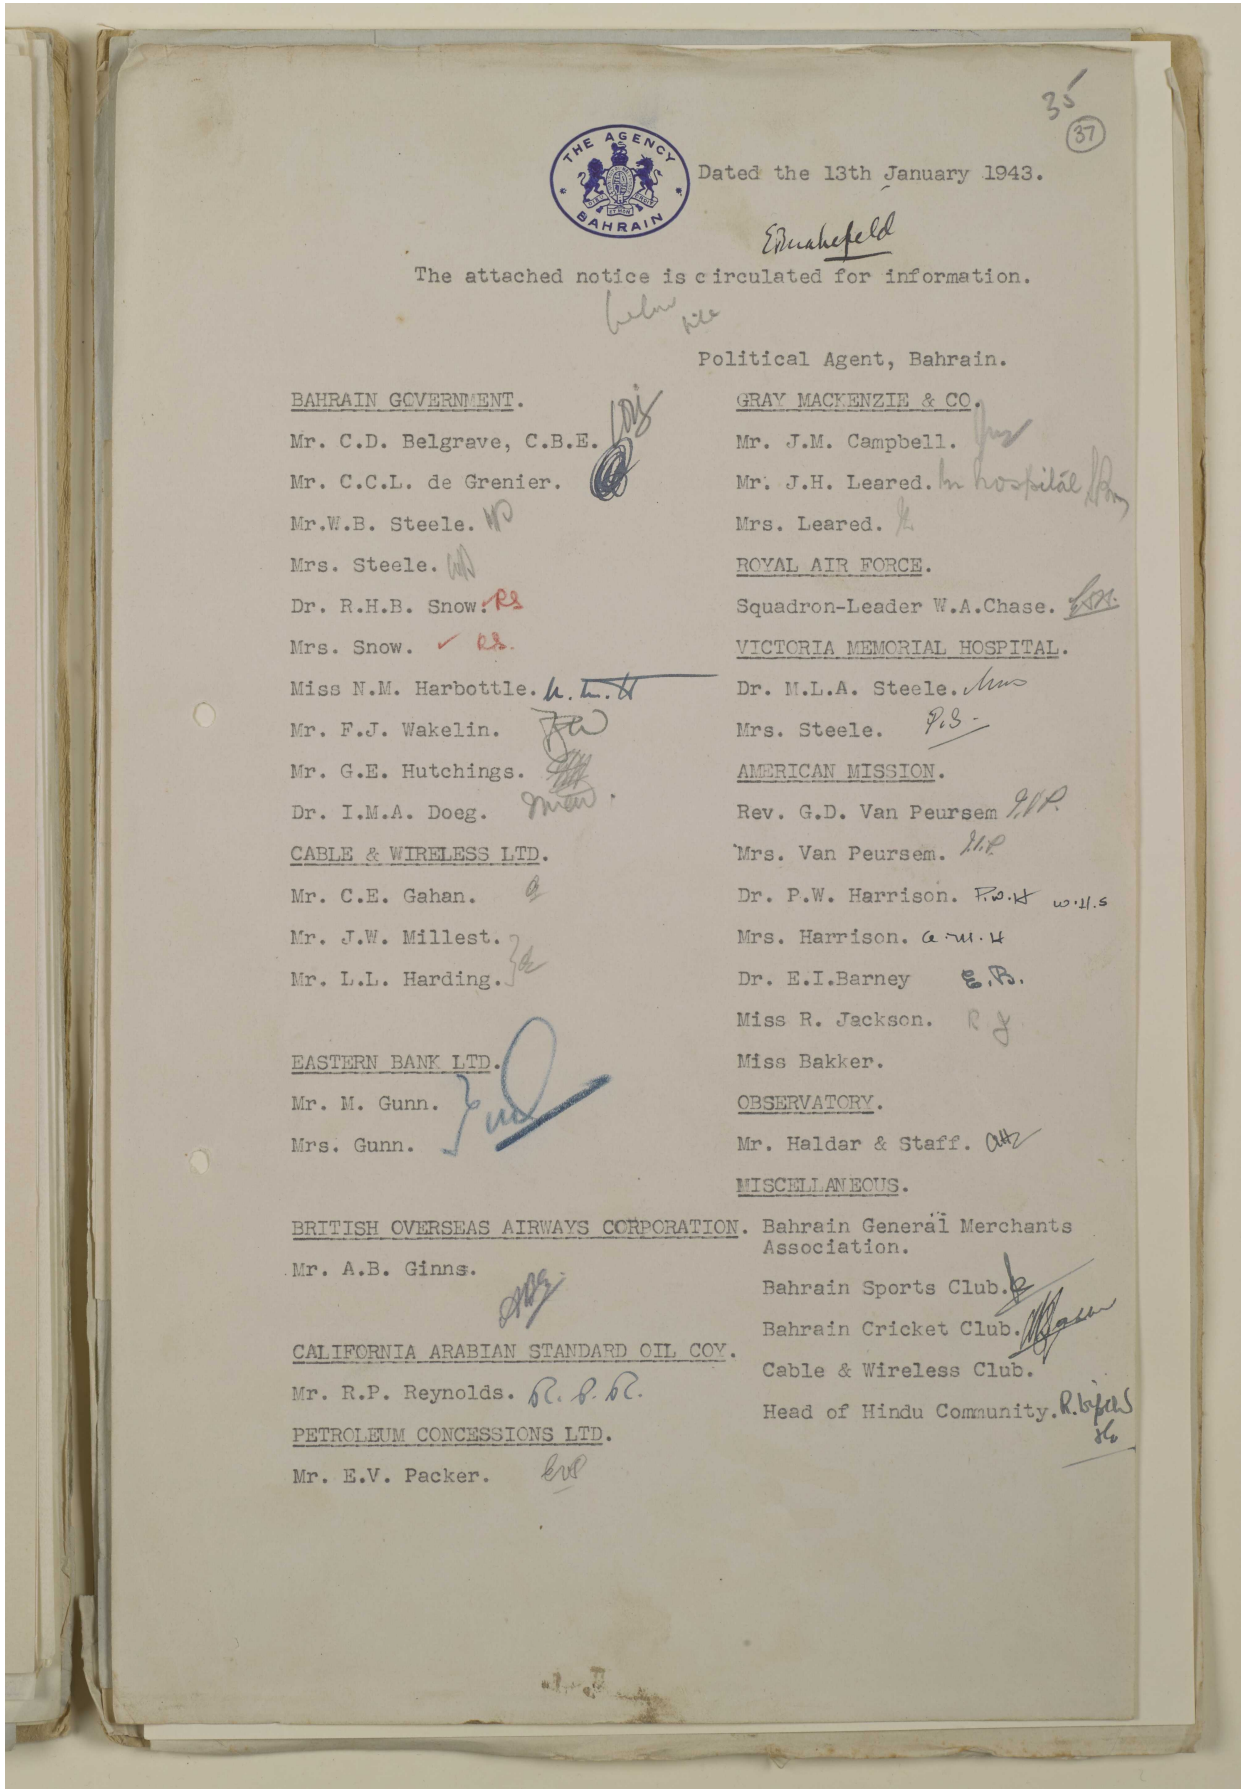 35
37
THE AGENCY
BAHRAIN
Dated the 13th January 1943.
The attached notice is circulated for information.
file
Political Agent, Bahrain.
BAHRAIN GOVERNMENT.
Mr. C.D. Belgrave, C.B.E.
Mr. C.C.L. de Grenier.
Mr.W.B. Steele.
Mrs. Steele.
Dr. R.H.B. Snow. RS
Mrs. Snow. ✓ RS.
Miss N.M. Harbottle. N.M.H
Mr. F.J. Wakelin. FJW
Mr. G.E. Hutchings.
Dr. I.M.A. Doeg.
CABLE & WIRELESS LTD.
Mr. C.E. Gahan.
Mr. J.W. Millest.
Mr. L.L. Harding.
EASTERN BANK LTD.
Mr. M. Gunn.
Mrs. Gunn.
BRITISH OVERSEAS AIRWAYS CORPORATION.
Mr. A.B. Ginns.
ABG
CALIFORNIA ARABIAN STANDARD OIL COY.
Mr. R.P. Reynolds. R.P.R.
PETROLEUM CONCESSIONS LTD.
Mr. E.V. Packer. EVP
GRAY MACKENZIE & CO.
Mr. J.M. Campbell.
Mr. J.H. Leared. In hospital
Mrs. Leared.
ROYAL AIR FORCE.
Squadron-Leader W.A.Chase.
VICTORIA MEMORIAL HOSPITAL.
Dr. M.L.A. Steele.
Mrs. Steele. P.S-
AMERICAN MISSION.
Rev. G.D. Van Peursem G.V.P.
Mrs. Van Peursem.
Dr. P.W. Harrison. P.W.H W.H.S
Mrs. Harrison. a.m.H
Dr. E.I.Barney E.B.
Miss R. Jackson. R J
Miss Bakker.
OBSERVATORY.
Mr. Haldar & Staff.
MISCELLANEOUS.
Bahrain General Merchants
Association.
Bahrain Sports Club.
Bahrain Cricket Club.
Cable & Wireless Club.
Head of Hindu Community.